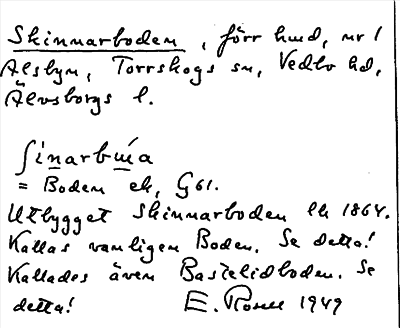 Skinnarboden, förr hmd, nr 1
Alsbyn, Torrskogs sn, Vedbo hd,
Älvsborgs l.
ʃinarbuı́a
= Boden ek, G61.
Utbygget Skinnarboden lh 1864.
Kallas vanligen Boden. Se detta!
Kallades även Bastelidboden. Se
detta! E. Rosell 1949